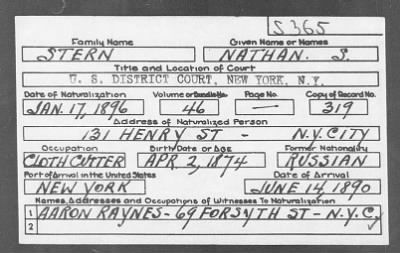 S365
Family Name Given Name or Names
STERN NATHAN. S.
Title and Location of Court
U. S. DISTRICT COURT, NEW YORK, N.Y.
Date of Naturalization Volume or Bundle No. Page No. Copy of Record No.
JAN. 17, 1896 46 — 319
Address of Naturalized Person
131 HENRY ST - N.Y. CITY
Occupation Birth Date or Age Former Nationality
CLOTH CUTTER APR. 2, 1874 RUSSIAN
Port of Arrival in the United States Date of Arrival
NEW YORK JUNE 14, 1890
Names, Addresses and Occupations of Witnesses To Naturalization
1 AARON RAYNES - 69 FORSYTH ST - N.Y.C.
2